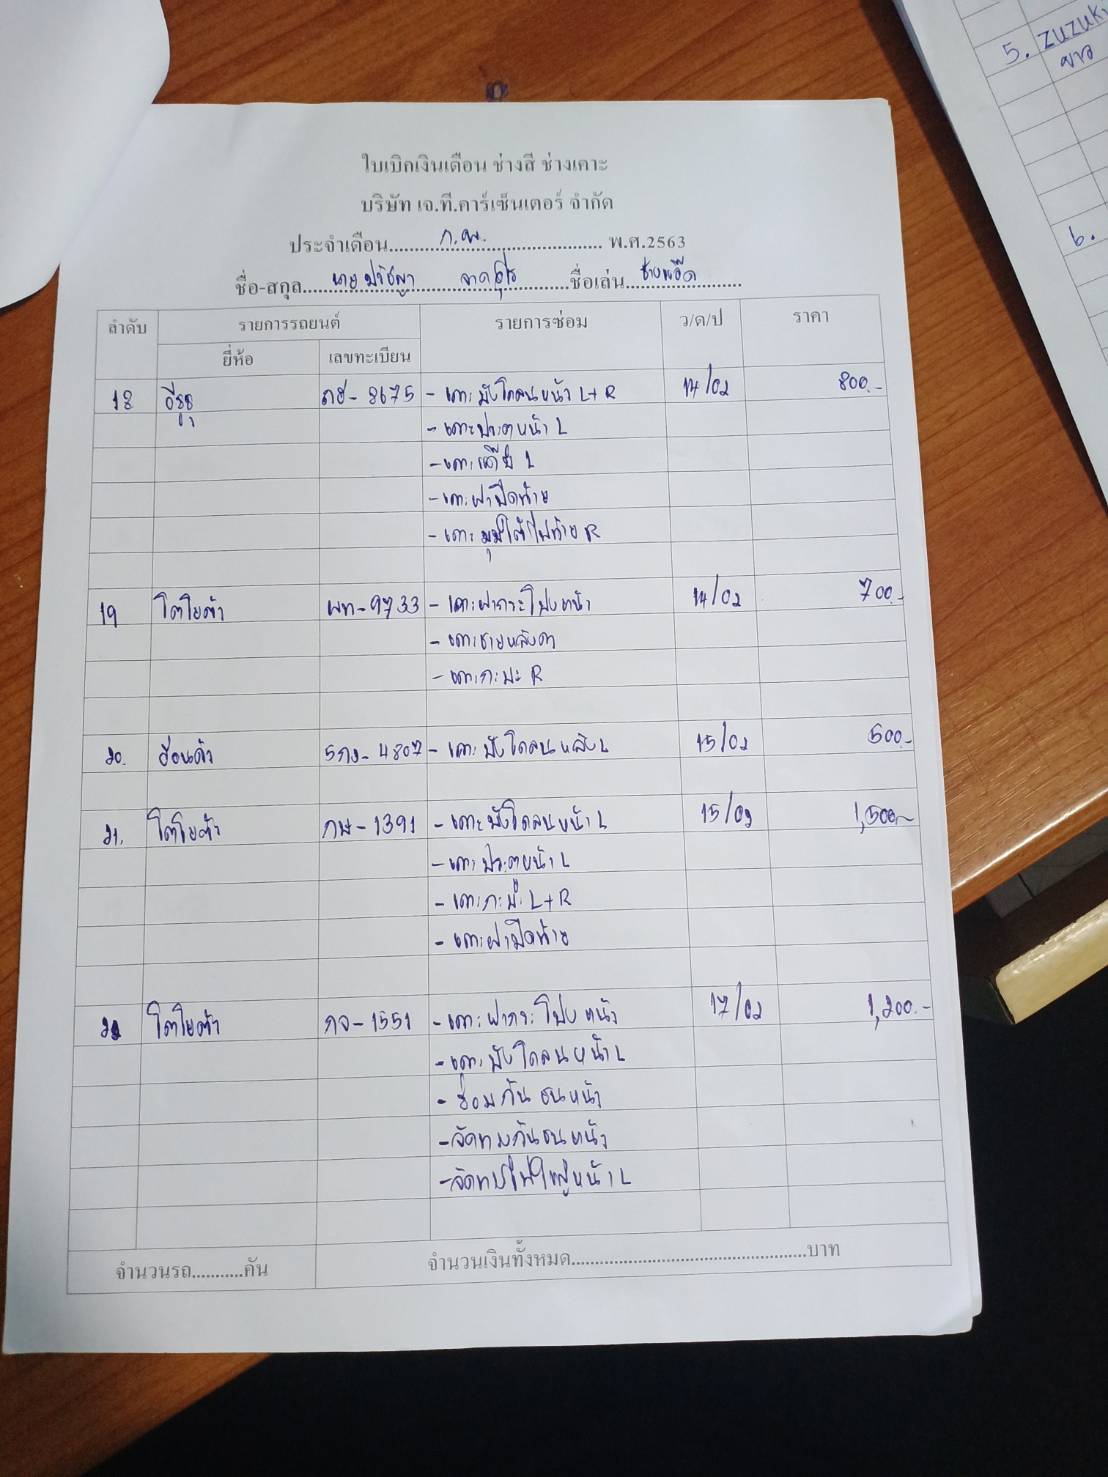 5. ZUZUKI
ขาว
6.
ใบเบิกเงินเดือน ช่างสี ช่างเคาะ
บริษัท เจ.ที.คาร์เซ็นเตอร์ จำกัด
ประจำเดือน ก.พ. พ.ศ.2563
ชื่อ-สกุล นาย ปรัชญา ชื่อเล่น
ลำดับ รายการรถยนต์ รายการซ่อม ว/ด/ป ราคา
ยี่ห้อ เลขทะเบียน
18 อีซูซุ - 8675 - เคาะบังโคลนหน้า L+R 14/02 800.-
- เคาะประตูหน้า L
- เคาะแก้ม L
- เคาะฝาปิดท้าย
- เคาะมุมใต้ไฟท้าย R
19 โตโยต้า ผท-9733 - เคาะฝากระโปรงหน้า 14/02 700.-
- เคาะชายหลังคา
- เคาะกะบะ R
20. ฮอนด้า 5กง-4807 - เคาะบังโคลนหลัง L 15/02 500.-
21. โตโยต้า กษ-1391 - เคาะบังโคลนหน้า L 15/02 1,500.-
- เคาะประตูหน้า L
- เคาะกะบะ L+R
- เคาะฝาปิดท้าย
22 โตโยต้า กจ-1551 - เคาะฝากระโปรงหน้า 17/02 1,200.-
- เคาะบังโคลนหน้า L
- ซ่อมกันชนหน้า
- จัดทรงกันชนหน้า
- จัดทรงไฟใหญ่หน้า L
จำนวนรถ...........คัน จำนวนเงินทั้งหมด..................................................บาท